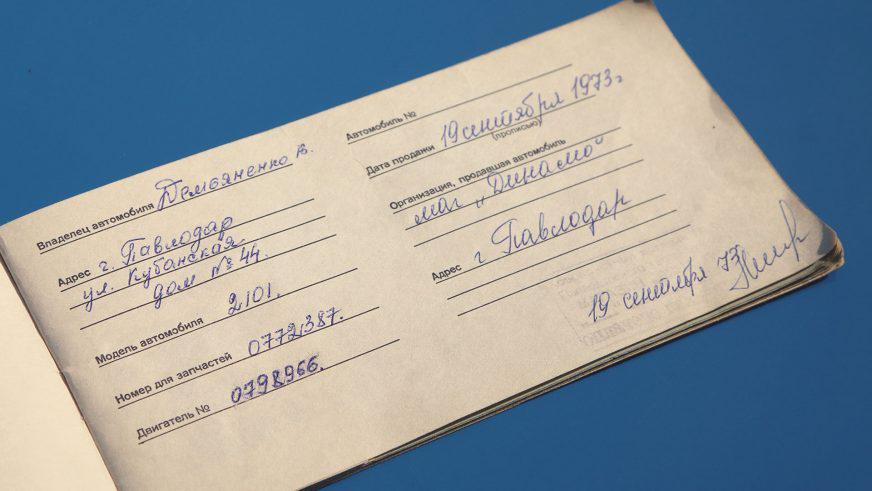 Владелец автомобиля Демьяненко В.
Адрес г. Павлодар
ул. Кубанская
дом № 44.
Модель автомобиля 2101.
Номер для запчастей 0772387.
Двигатель № 0798966.
Автомобиль №
Дата продажи 19 сентября 1973 г
(прописью)
Организация, продавшая автомобиль
маг „Динамо“
Адрес г Павлодар
19 сентября 73